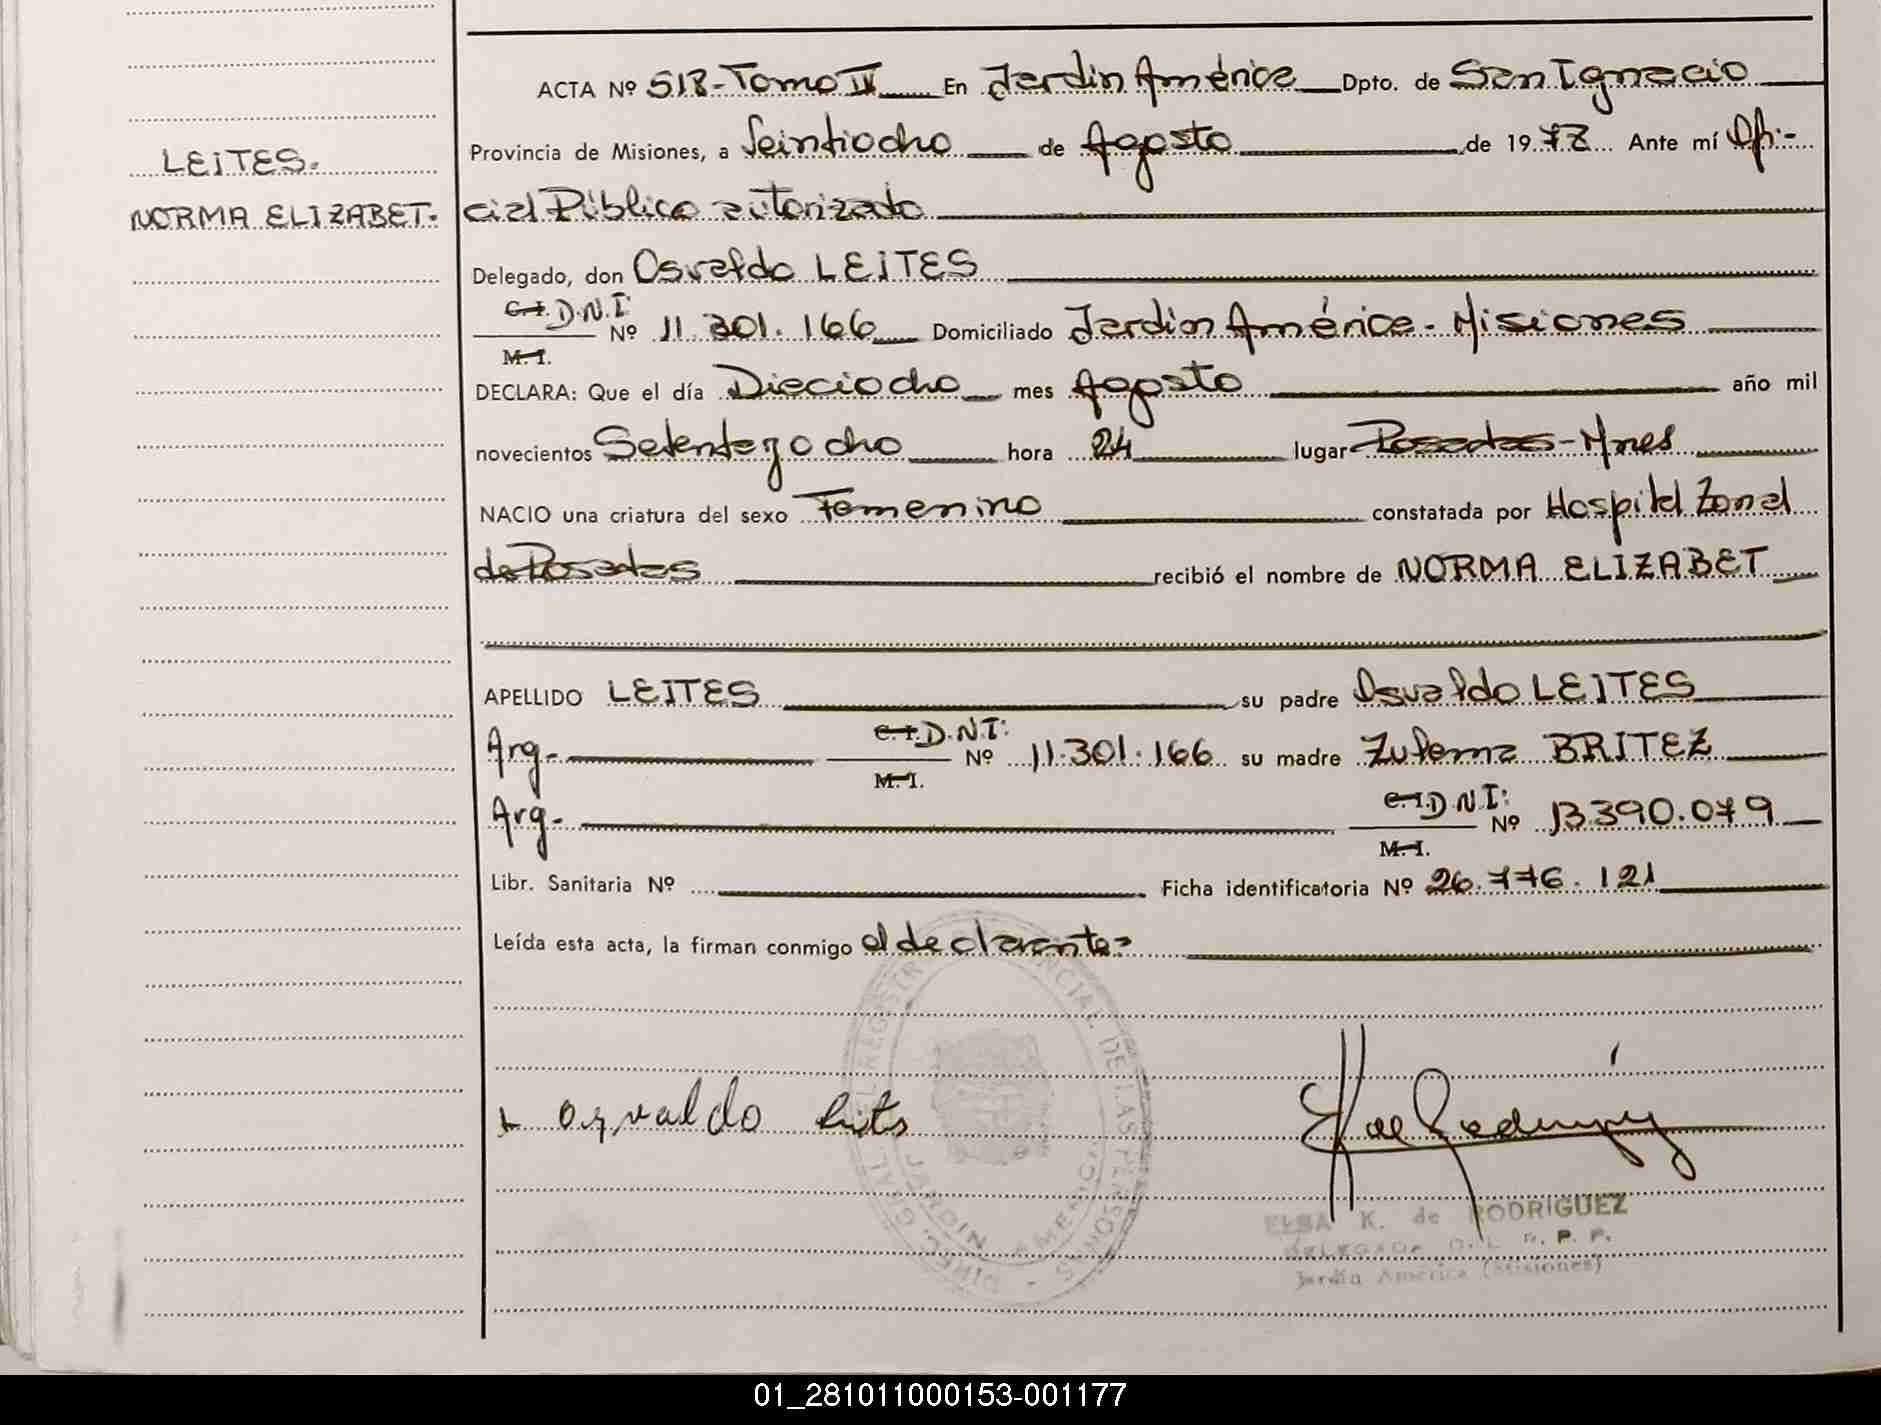 ACTA Nº 518-Tomo IV En Jardin América Dpto. de San Ignacio
Provincia de Misiones, a Veintiocho de Agosto de 1978 Ante mí Ofi-
cial Público autorizado
LEITES.
NORMA ELIZABET.
Delegado, don Osvaldo LEITES
C.I. D.N.I:
Nº 11.301.166 Domiciliado Jardin América - Misiones
M.I.
DECLARA: Que el día Dieciocho mes Agosto año mil
novecientos Setentayocho hora 24 lugar Posadas-Mnes
NACIO una criatura del sexo Femenino constatada por Hospital Zonal
de Posadas recibió el nombre de NORMA ELIZABET
APELLIDO LEITES su padre Osvaldo LEITES
C.I. D.N.I:
Arg. Nº 11.301.166 su madre Zulema BRITEZ
M.I.
C.I. D.N.I:
Arg. Nº 13.390.079
M.I.
Libr. Sanitaria Nº Ficha identificatoria Nº 26.776.121
Leída esta acta, la firman conmigo el declarante=
osvaldo leits
DIREC. GRAL. DEL REGISTRO PROVINCIAL DE LAS PERSONAS - JARDIN AMERICA
ELSA K. de RODRIGUEZ
DELEGADA DEL R. P. P.
Jardín América (Misiones)
01_281011000153-001177